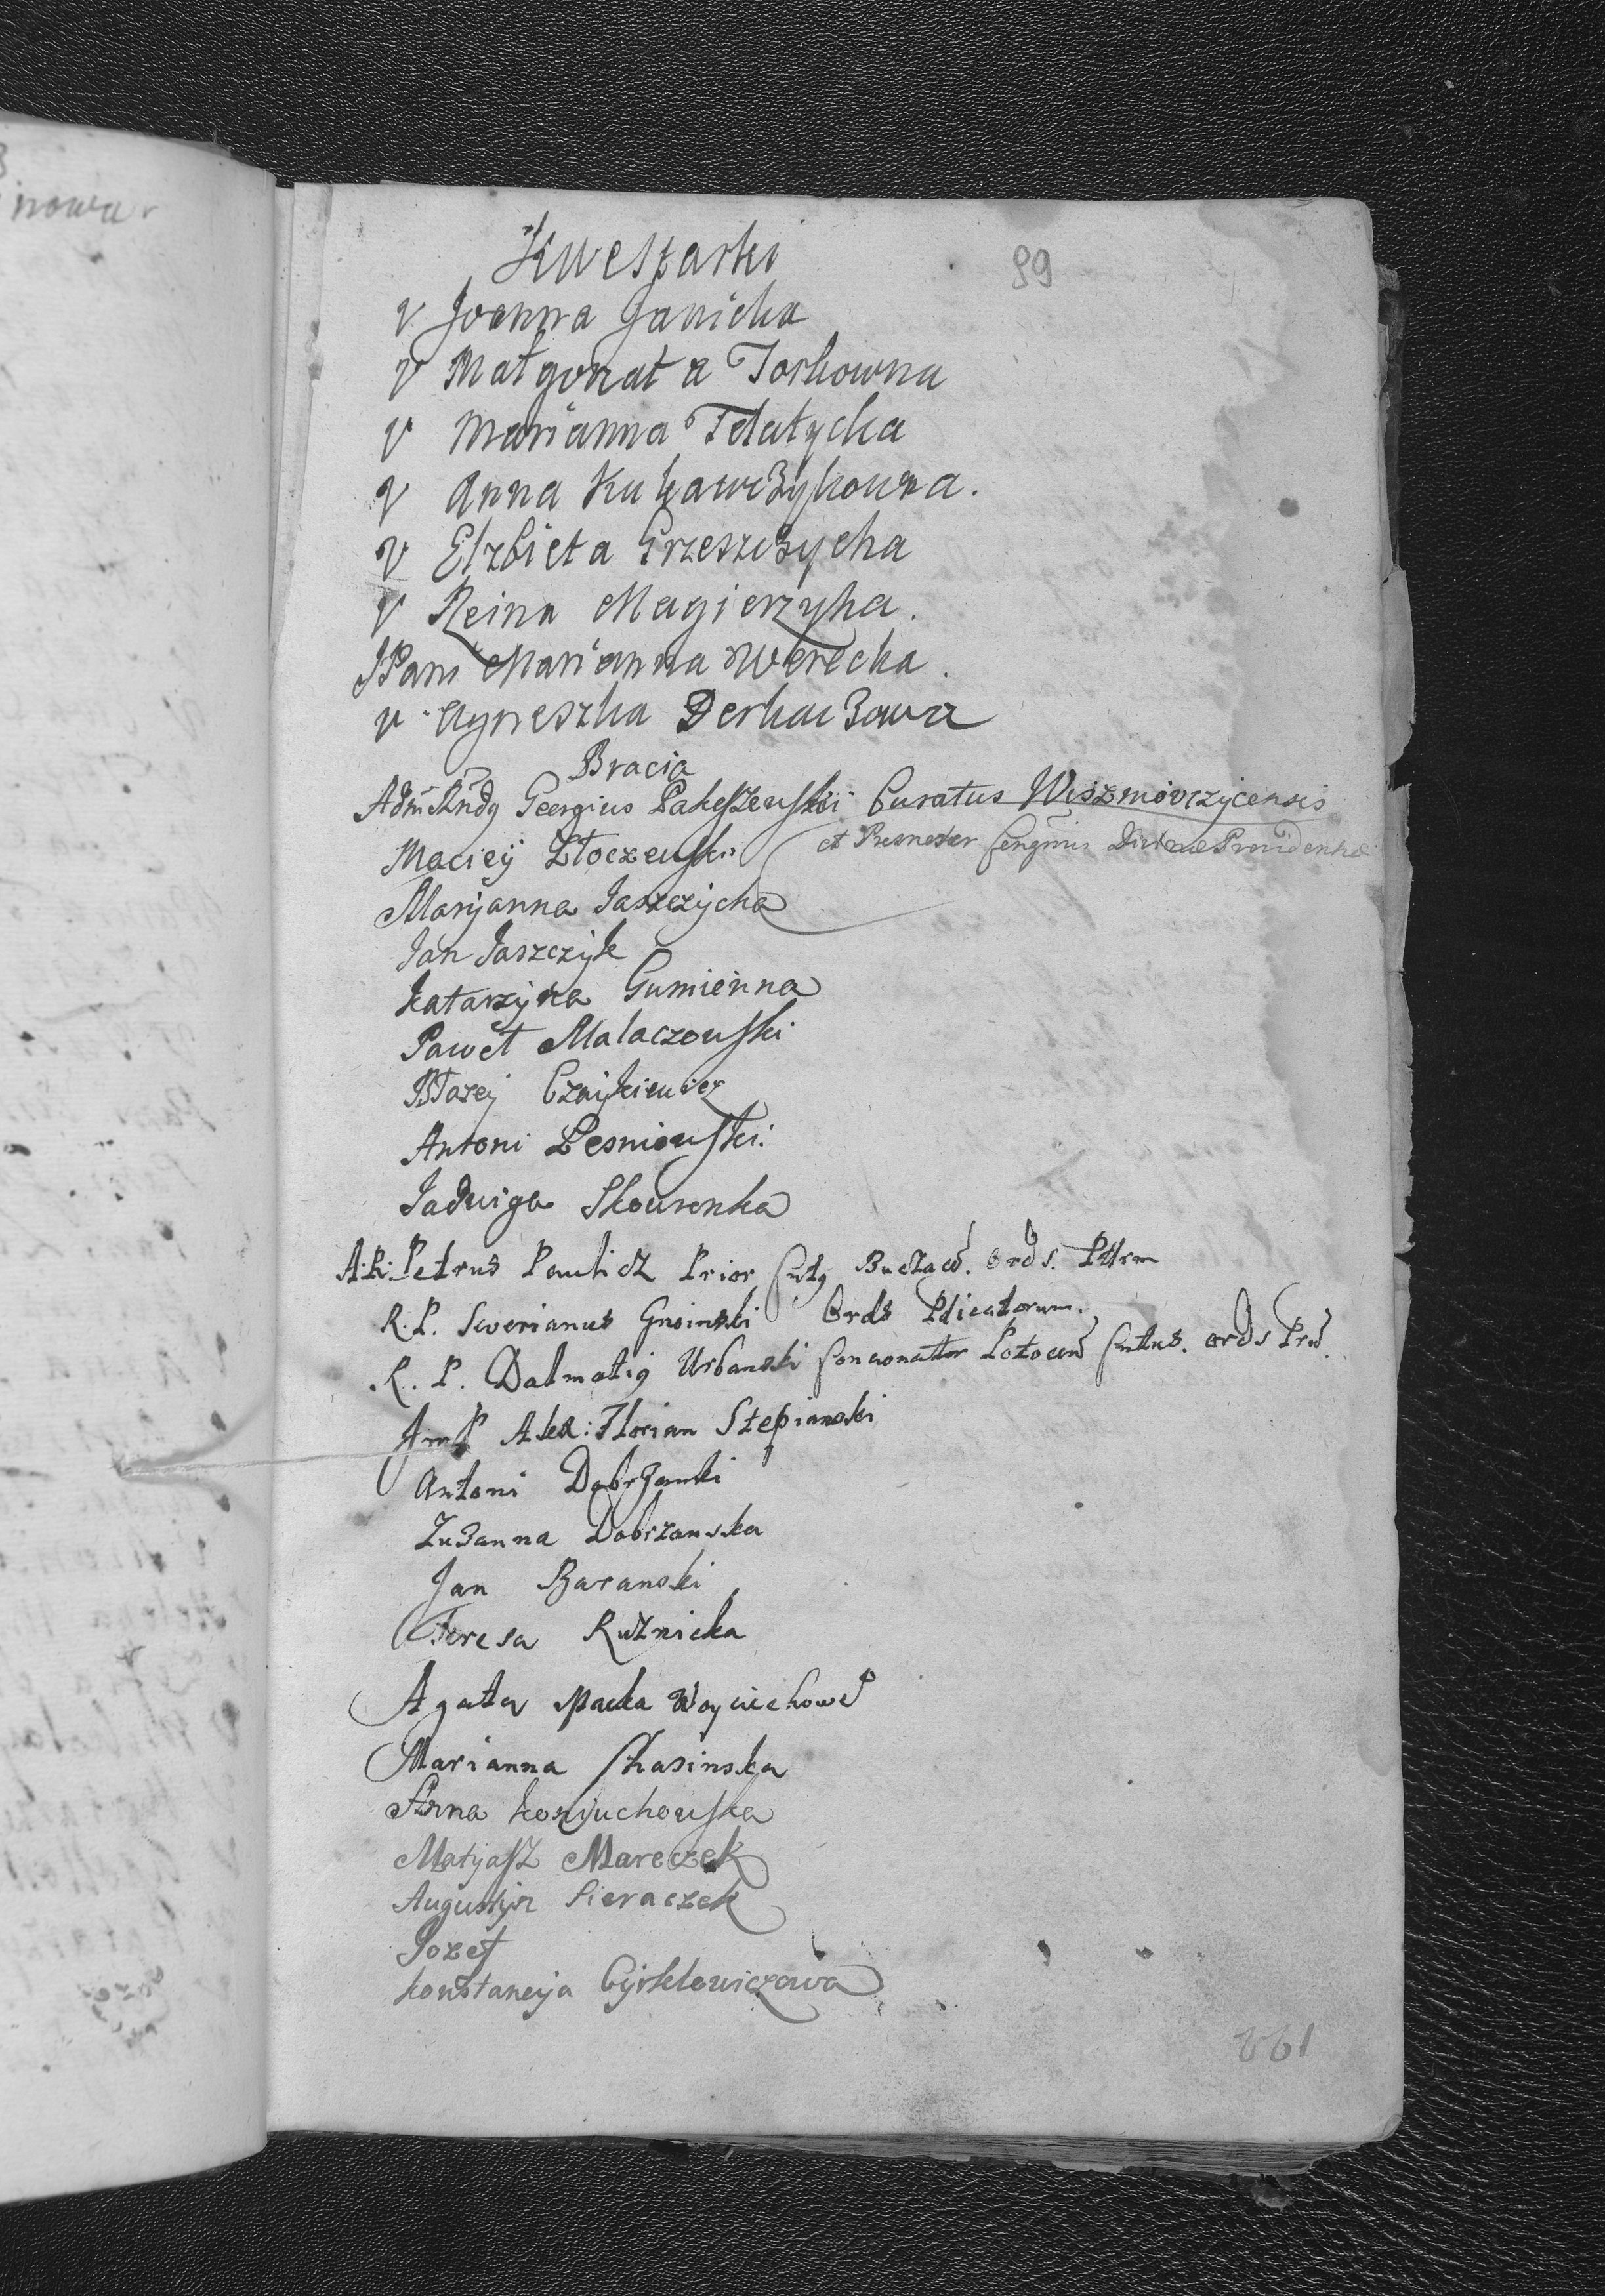 nowa
Kwestarki
89
v Joanna Janicka
v Małgorzata Torkowna
v Marianna Telatycka
v Anna Kukawczykowna.
v Elzbieta Grzeszczycha
v Reina Magierzyka.
JPani Marianna Werecka.
v Agneszka Derkaczowa
Bracia
Adm Rndg Georgius Pakeszewski Curatus Wiszniovczycensis
Maciey Złoczewski et Divinae Providentiae
Maryanna Jaszczycha
Jan Jaszczyk
Katarzyna Gumienna
Paweł Malaczowski
Błazey Czaykiewicz
Antoni Lesniowski.
Jadwiga Skouronka
A.R. Petrus Pawlicz Prior Buczacẽ. Ords. Pttrm
R. P. Severianus Gnoinski Ords Pdicatorum.
R. P. Dalmatig Urbanski Concionattor Potocen Ords Prd.
Alex: Florian Stepianski
Antoni Dobrzanski
Zuzanna Dobrzanska
Jan Baranski
Teresa Ruznicka
Agata Macka Woyciechowa
Marianna Stasinska
Anna Koniuchowska
Matyasz Mareczek
Augustyn Sieraczek
Jozef
Konstancya Cyrklowiczowa